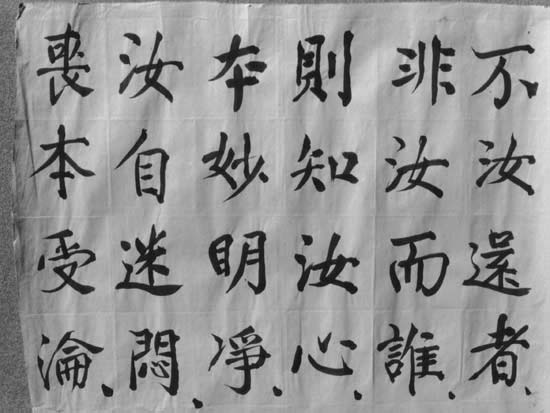 不汝還者.
非汝而誰.
則知汝心.
本妙明淨.
汝自迷悶.
喪本受淪.